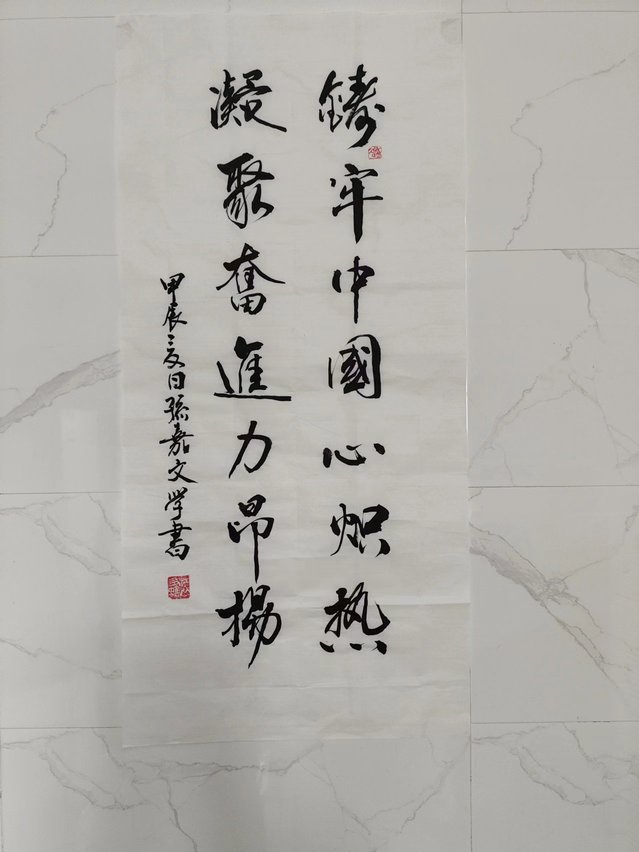 鑄牢中國心炽热
凝聚奮進力昂揚
甲辰之夏日孫嘉文学書